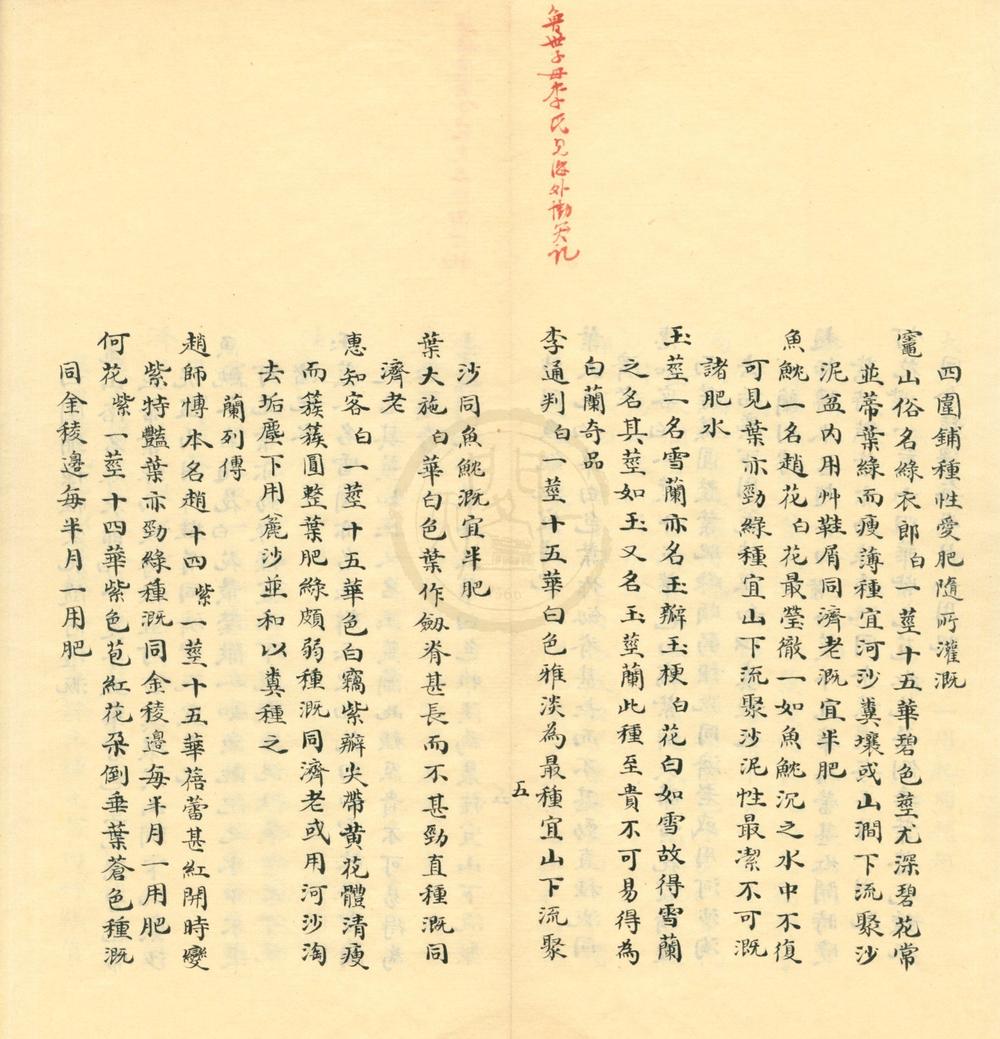 四圍鋪種性愛肥隨所灌溉
竈山俗名綠衣郎白一莖十五華碧色莖尤深碧花常
並蒂葉綠而瘦薄種宜河沙糞壤或山澗下流聚沙
泥盆內用艸鞋屑同濟老溉宜半肥
魚魫一名趙花白花最瑩徹一如魚魫沉之水中不復
可見葉亦勁綠種宜山下流聚沙泥性最潔不可溉
諸肥水
玉莖一名雪蘭亦名玉瓣玉梗白花白如雪故得雪蘭
之名其莖如玉又名玉莖蘭此種至貴不可易得為
白蘭奇品
李通判白一莖十五華白色雅淡為最種宜山下流聚
五
沙同魚魫溉宜半肥
葉大施白華白色葉作劔脊甚長而不甚勁直種溉同
濟老
惠知客白一莖十五華色白竊紫瓣尖帶黃花體清瘦
而簇簇圓整葉肥綠頗弱種溉同濟老或用河沙淘
去垢塵下用麄沙並和以糞種之
蘭列傳
趙師愽本名趙十四紫一莖十五華蓓蕾甚紅開時變
紫特豔葉亦勁綠種溉同金稜邊每半月一用肥
何花紫一莖十四華紫色苞紅花朶倒垂葉蒼色種溉
同金稜邊每半月一用肥